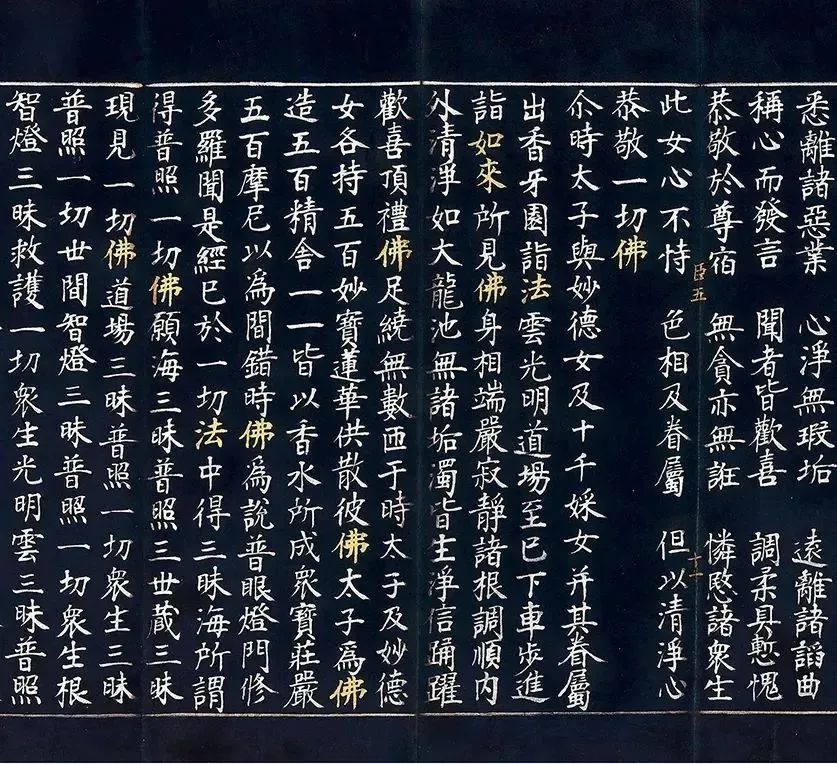 悉離諸惡業　心淨無瑕垢　遠離諸謟曲
稱心而發言　聞者皆歡喜　調柔具慙愧
恭敬於尊宿　無貪亦無誑　憐愍諸衆生
此女心不恃　色相及眷屬　但以清淨心
恭敬一切佛
尒時太子與妙德女及十千婇女并其眷屬
出香牙園詣法雲光明道場至已下車步進
詣如來所見佛身相端嚴寂靜諸根調順內
外清淨如大龍池無諸垢濁皆生淨信踊躍
歡喜頂禮佛足繞無數匝于時太子及妙德
女各持五百妙寶蓮華供散彼佛太子爲佛
造五百精舍一一皆以香水所成衆寶莊嚴
五百摩尼以爲間錯時佛爲說普眼燈門修
多羅聞是經已於一切法中得三昧海所謂
得普照一切佛願海三昧普照三世藏三昧
現見一切佛道場三昧普照一切衆生三昧
普照一切世間智燈三昧普照一切衆生根
智燈三昧救護一切衆生光明雲三昧普照
臣五
十一